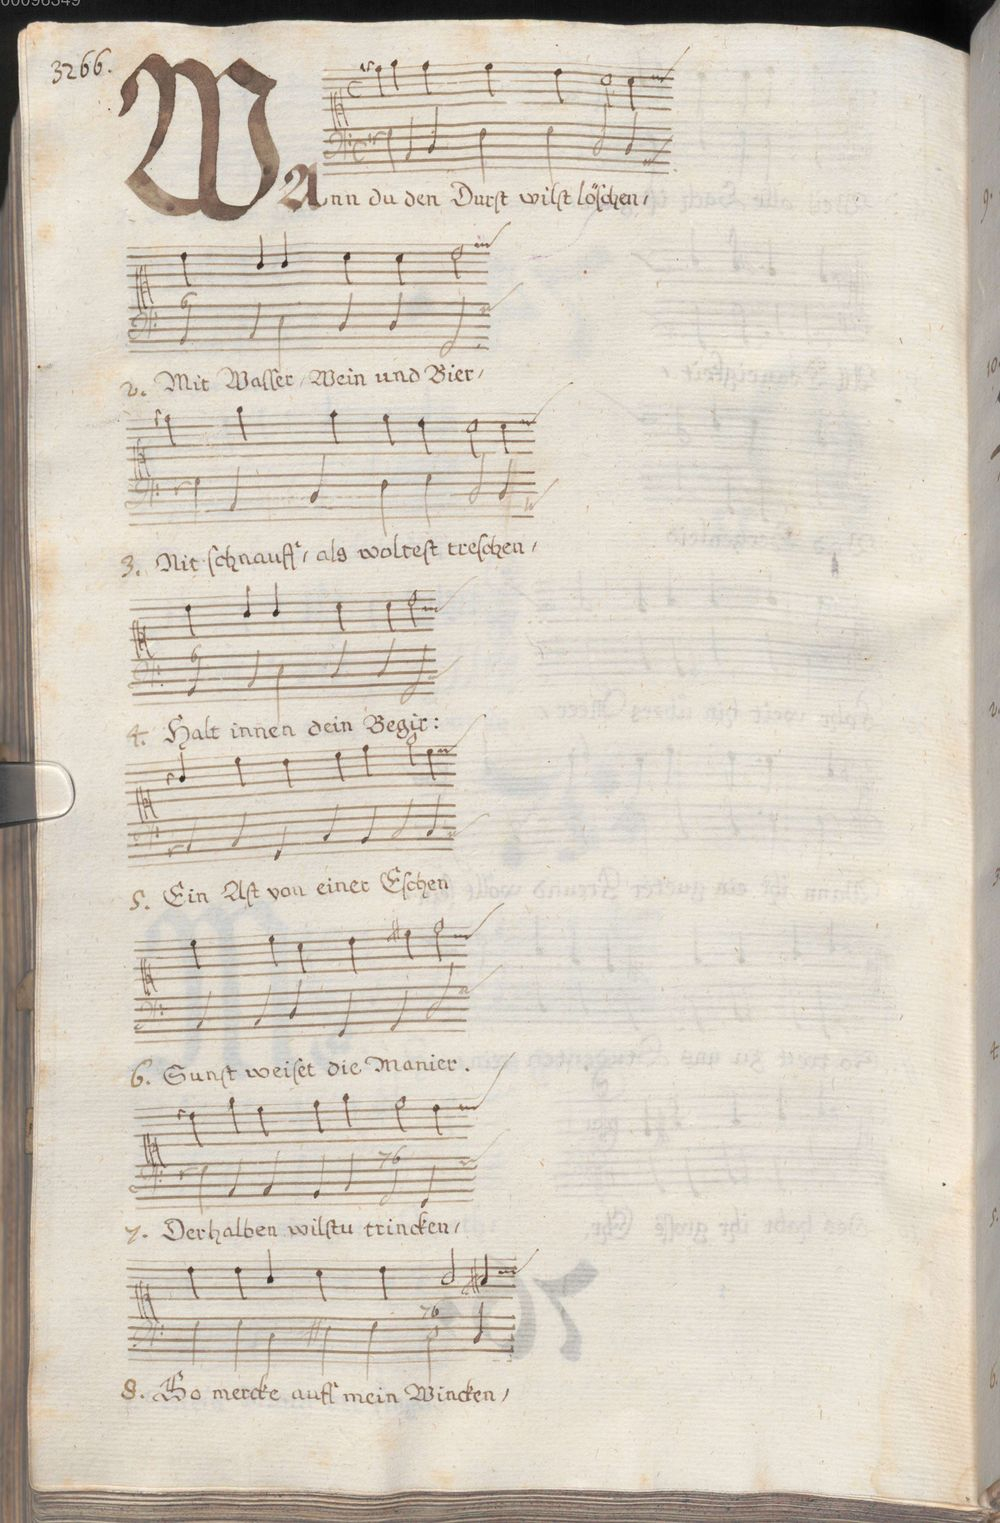 3266.
WAnn du den Durst wilst löschen/
2. Mit Wasser/Wein und Bier/
3. Nit schnauff/ als woltest treschen/
4. Halt innen dein Begir:
5. Ein Ast von einer Eschen
6. Sunst weiset die Manier.
7. Derhalben wilstu trincken/
8. So mercke auff mein Wincken/